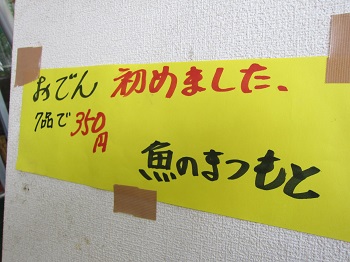 おでん 初めました、
7品で350円
魚のまつもと